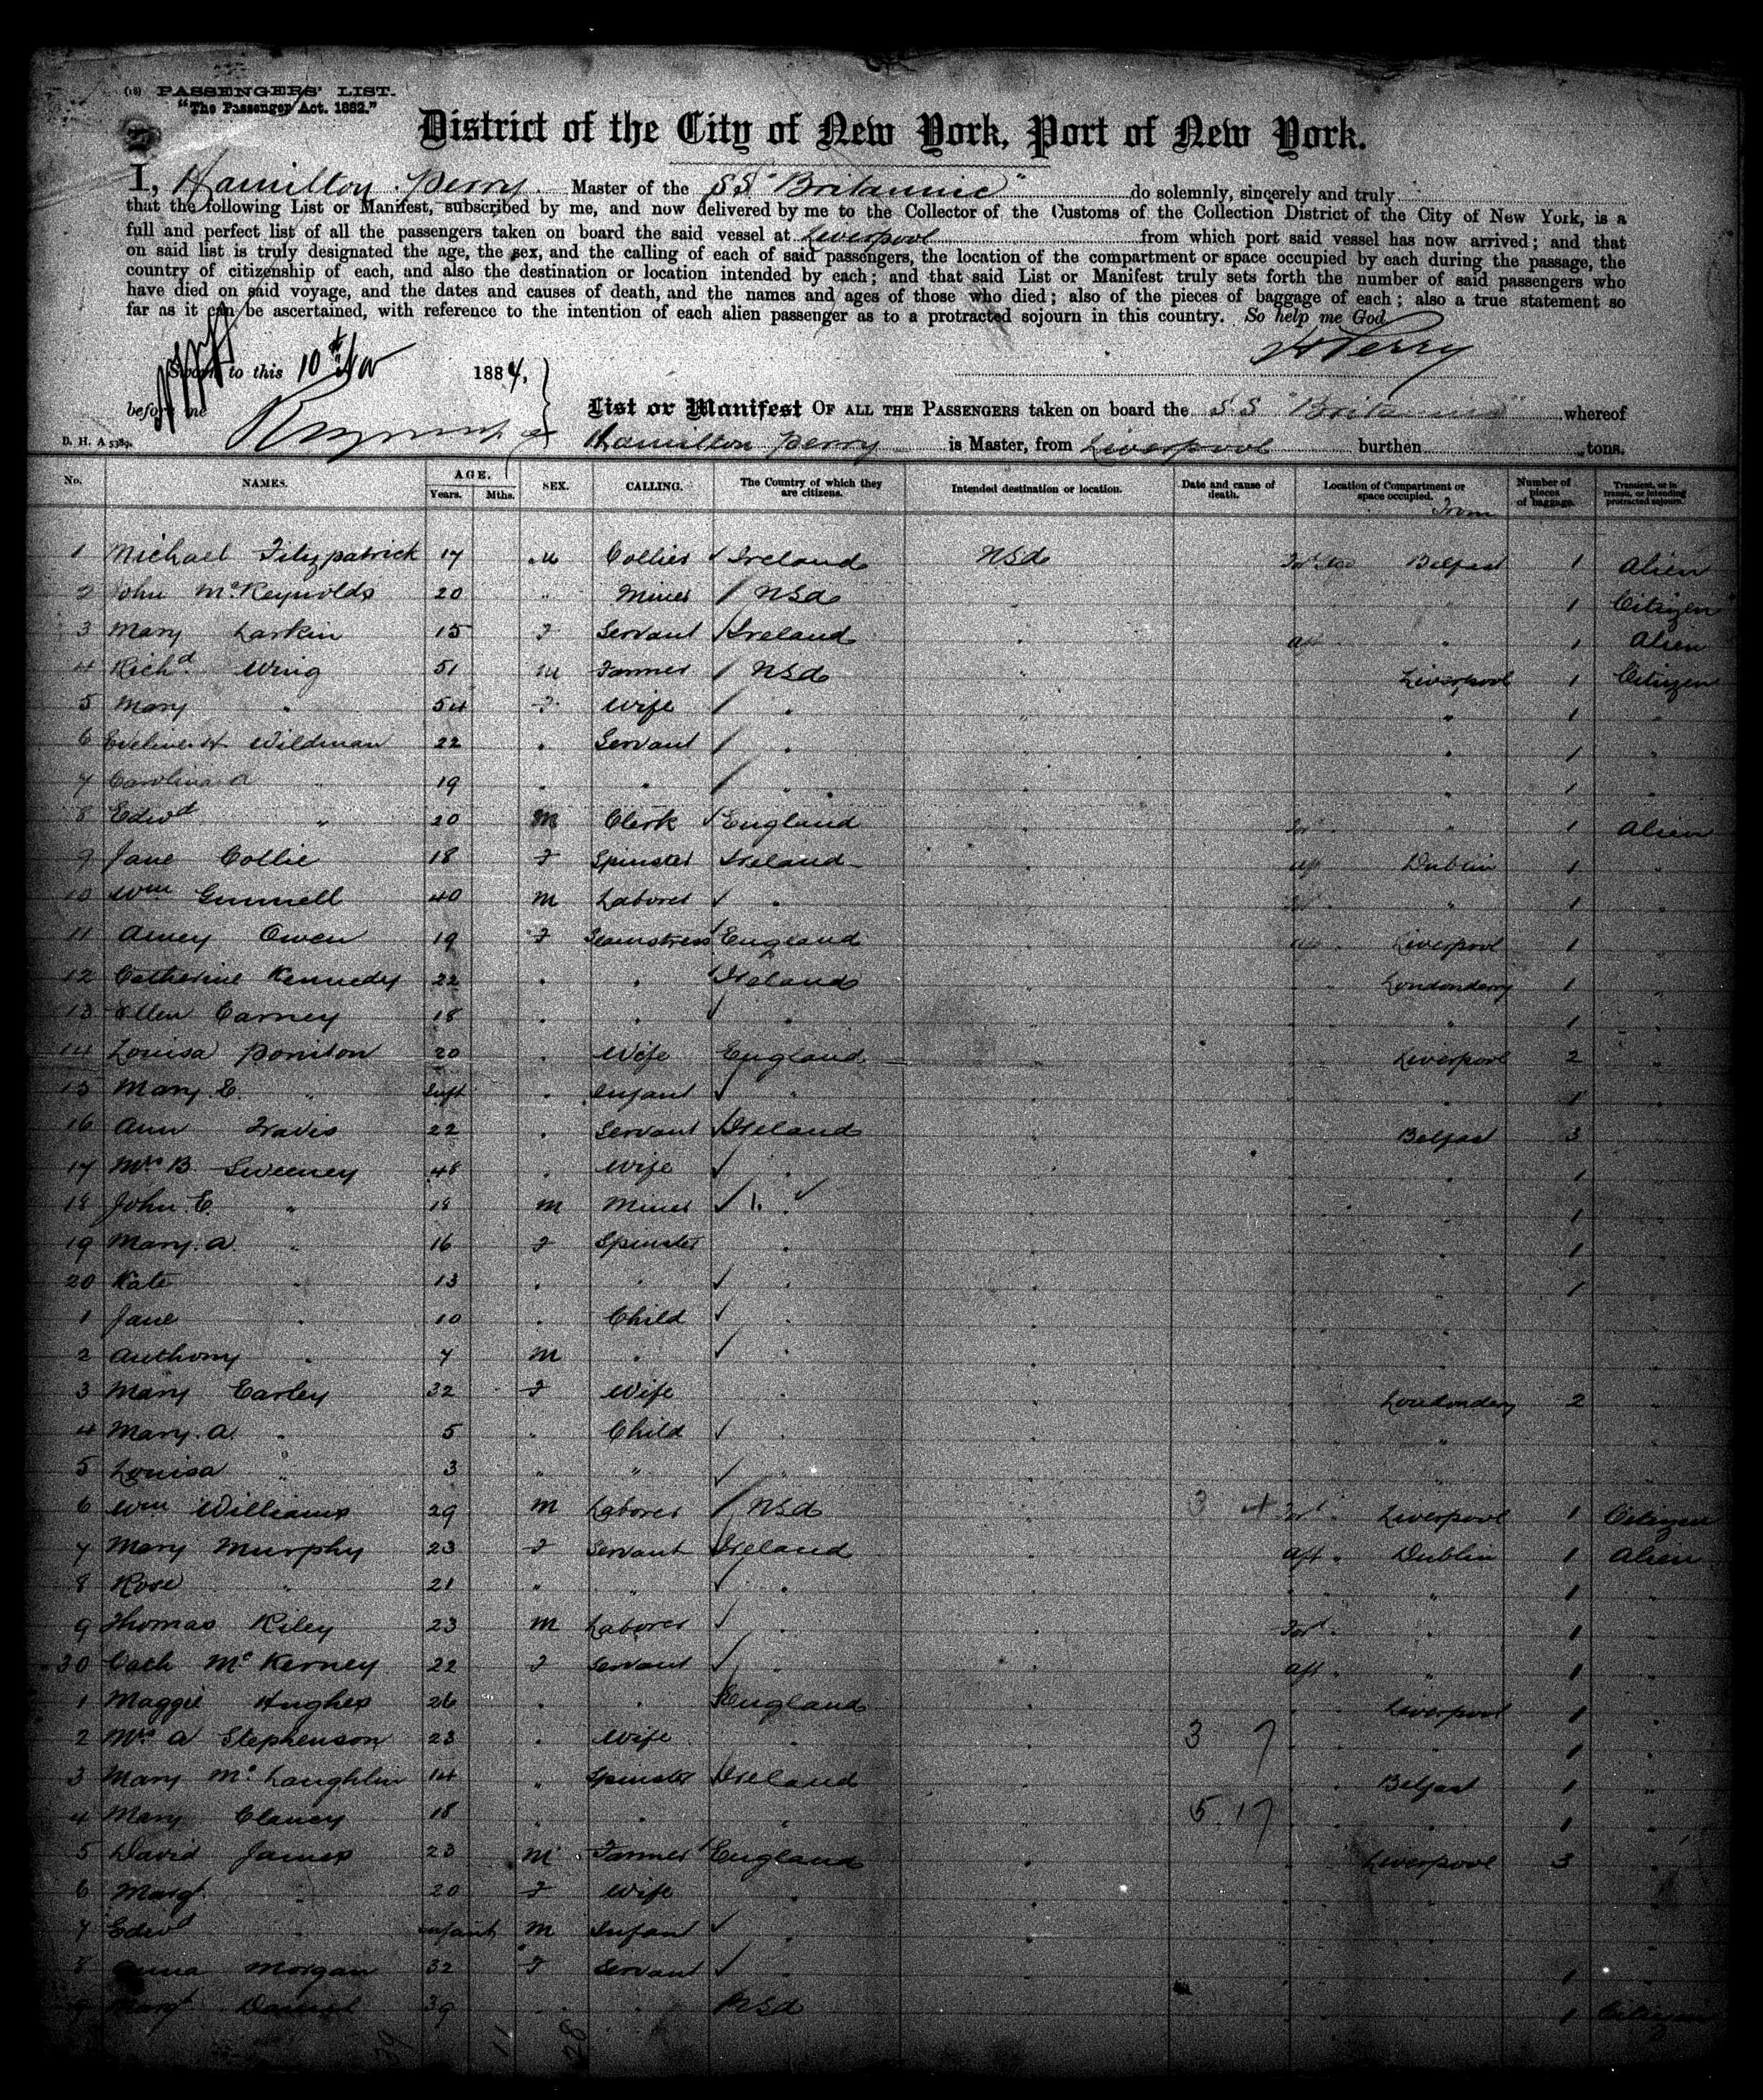 (18) PASSENGERS' LIST.
"The Passenger Act. 1882."
District of the City of New York, Port of New York.
I, Hamilton Perry Master of the SS "Britannic" do solemnly, sincerely and truly
that the following List or Manifest, subscribed by me, and now delivered by me to the Collector of the Customs of the Collection District of the City of New York, is a
full and perfect list of all the passengers taken on board the said vessel at Liverpool from which port said vessel has now arrived; and that
on said list is truly designated the age, the sex, and the calling of each of said passengers, the location of the compartment or space occupied by each during the passage, the
country of citizenship of each, and also the destination or location intended by each; and that said List or Manifest truly sets forth the number of said passengers who
have died on said voyage, and the dates and causes of death, and the names and ages of those who died; also of the pieces of baggage of each; also a true statement so
far as it can be ascertained, with reference to the intention of each alien passenger as to a protracted sojourn in this country. So help me God
H Perry
Sworn to this 10th 1884,
before me
List or Manifest OF ALL THE PASSENGERS taken on board the S.S "Britannic" whereof
D. H. A 5389. Hamilton Perry is Master, from Liverpool burthen tons.
No. NAMES. AGE. Years. Mths. SEX. CALLING. The Country of which they are citizens. Intended destination or location. Date and cause of death. Location of Compartment or space occupied. Number of pieces of baggage. Transient, or in transit, or intending protracted sojourn.
From
1 Michael Fitzpatrick 17 M Collier Ireland USA Belfast 1 Alien
2 John McReynolds 20 " Miner USA " 1 Citizen
3 Mary Larkin 15 F Servant Ireland " aft " 1 Alien
4 Richd Wing 51 M Farmer USA " Liverpool 1 Citizen
5 Mary " 54 F Wife " " " 1 "
6 Eveline H Wildman 22 " Servant " " " 1 "
7 Carolina A " 19 " " " " " 1 "
8 Edwd " 20 M Clerk England " " 1 Alien
9 Jane Collie 18 F Spinster Ireland " aft Dublin 1 "
10 Wm Gunnell 40 M Laborer " " " 1 "
11 Amey Owen 19 F Seamstress England " Liverpool 1 "
12 Catherine Kennedy 22 " " Ireland " Londonderry 1 "
13 Ellen Carney 18 " " " " " 1 "
14 Louisa Boniton 20 " Wife England " Liverpool 2 "
15 Mary E. " Inft " Infant " " " 1 "
16 Ann Travis 22 " Servant Ireland " Belfast 3 "
17 Mrs B. Sweeney 48 " Wife " " " 1 "
18 John E. " 18 M Miner " " " 1 "
19 Mary A " 16 F Spinster " " " 1 "
20 Kate " 13 " " " " " 1 "
1 Jane " 10 " Child " " " "
2 Anthony " 7 M " " " " "
3 Mary Earley 32 F Wife " " Londonderry 2 "
4 Mary A. " 5 " Child " " " "
5 Louisa " 3 " " " " " "
6 Wm Williams 29 M Laborer USA " 3 4 Liverpool 1 Citizen
7 Mary Murphy 23 F Servant Ireland " aft " Dublin 1 Alien
8 Rose " 21 " " " " " " 1 "
9 Thomas Riley 23 M Laborer " " " 1 "
30 Cath McKerney 22 F Servant " " aft " " 1 "
1 Maggie Hughes 26 " " England " Liverpool 1 "
2 Mrs A Stephenson 23 " Wife " " 3 7 " 1 "
3 Mary McLaughlin 14 " Spinster Ireland " Belfast 1 "
4 Mary Clancy 18 " " " " 5 17 " 1 "
5 David James 23 M Farmer England " Liverpool 3 "
6 Margt " 20 F Wife " " " "
7 Edwd " Infant M Infant " " " "
8 Anna Morgan 32 F Servant " " " 1 "
9 Margt Daniel 39 " " USA " " 1 Citizen
11 28